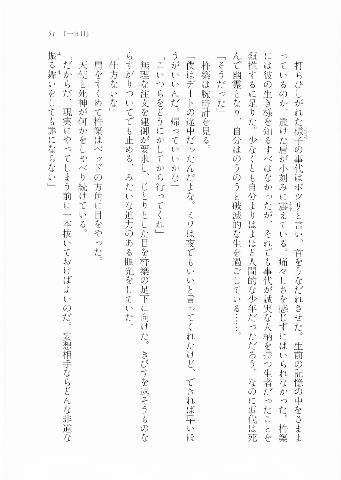 51 『一日目』
打ちひしがれた様子の事代はポツリと言い、首をうなだれさせた。生前の記憶の中をさまよ
っているのか、透けた肩が小刻みに震えている。痛々しさを感じずにはいられなかった。杵築
には彼の生き様を知るすべはなかったが、それでも事代が誠実な人柄を持つ生者だったことを
類推するに足りた。少なくとも自分よりはよほど人間的な少年だっただろう。なのに事代は死
んで幽霊となり、自分はのうのうと破滅的な生を過ごしている……。
「そうだった」
杵築は腕時計を見る。
「僕はデートの途中だったんだよな。ミワは夜でもいいと言ってくれたけど、できれば早いほ
うがいいんだ。帰っていいかな」
「こいつらをどうにかしてから行ってくれ」
無理な注文を建御が要求し、じとりとした目を杵築の足下に向けた。きびすを返そうものな
らすがりついてでも止める、みたいな迫力のある眼光をしていた。
「仕方ないな」
肩をすくめて杵築はベッドの方角に目をやった。
天使と死神が何かをしゃべり続けている。
「だからだ、現実にやってしまう前に一本抜いておけばよいのだ。妄想相手ならどんな非道な
振る舞いをしても罪にならない」